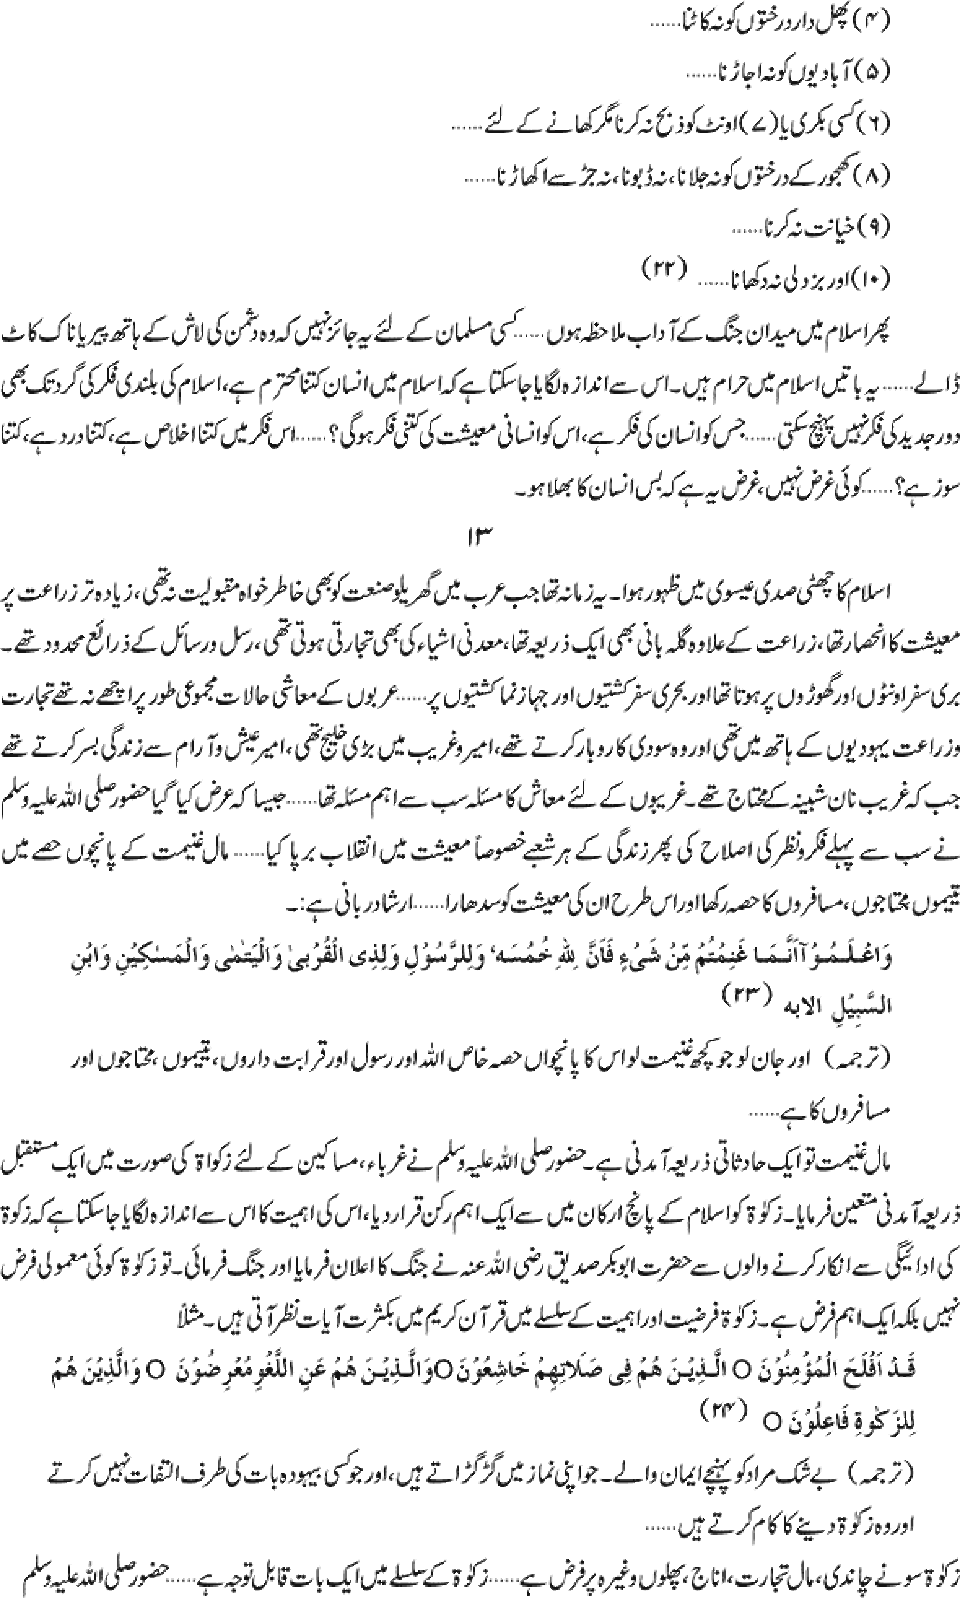 (۴) پھل دار درختوں کو نہ کاٹنا……
(۵) آبادیوں کو نہ اجاڑنا……
(۶) کسی بکری یا (۷) اونٹ کو ذبح نہ کرنا مگر کھانے کے لئے……
(۸) کھجور کے درختوں کو نہ جلانا، نہ ڈبونا، نہ جڑ سے اکھاڑنا……
(۹) خیانت نہ کرنا……
(۱۰) اور بزدلی نہ دکھانا…… (۲۲)
پھر اسلام میں میدان جنگ کے آداب ملاحظہ ہوں……کسی مسلمان کے لئے یہ جائز نہیں کہ وہ دشمن کی لاش کے ہاتھ پیر یا ناک کاٹ
ڈالے……یہ باتیں اسلام میں حرام ہیں۔ اس سے اندازہ لگایا جا سکتا ہے کہ اسلام میں انسان کتنا محترم ہے، اسلام کی بلندی فکر کی گرد تک بھی
دور جدید کی فکر نہیں پہنچ سکتی……جس کو انسان کی فکر ہے، اس کو انسانی معیشت کی کتنی فکر ہوگی؟……اس فکر میں کتنا اخلاص ہے، کتنا درد ہے، کتنا
سوز ہے؟……کوئی غرض نہیں، غرض یہ ہے کہ بس انسان کا بھلا ہو۔
۱۳
اسلام کا چھٹی صدی عیسوی میں ظہور ہوا۔ یہ زمانہ تھا جب عرب میں گھریلو صنعت کو بھی خاطر خواہ مقبولیت نہ تھی، زیادہ تر زراعت پر
معیشت کا انحصار تھا، زراعت کے علاوہ گلہ بانی بھی ایک ذریعہ تھا، معدنی اشیاء کی بھی تجارتی ہوتی تھی، رسل و رسائل کے ذرائع محدود تھے۔
بری سفر اونٹوں اور گھوڑوں پر ہوتا تھا اور بحری سفر کشتیوں اور جہاز نما کشتیوں پر……عربوں کے معاشی حالات مجموعی طور پر اچھے نہ تھے تجارت
و زراعت یہودیوں کے ہاتھ میں تھی اور وہ سودی کاروبار کرتے تھے، امیر و غریب میں بڑی خلیج تھی، امیر عیش و آرام سے زندگی بسر کرتے تھے
جب کہ غریب نان شبینہ کے محتاج تھے۔ غریبوں کے لئے معاش کا مسئلہ سب سے اہم مسئلہ تھا……جیسا کہ عرض کیا گیا حضور صلی اللہ علیہ وسلم
نے سب سے پہلے فکر و نظر کی اصلاح کی پھر زندگی کے ہر شعبے خصوصاً معیشت میں انقلاب برپا کیا……مال غنیمت کے پانچوں حصے میں
یتیموں محتاجوں، مسافروں کا حصہ رکھا اور اس طرح ان کی معیشت کو سدھارا……ارشاد ربانی ہے:۔
وَاعْلَمُوْآاَنَّمَا غَنِمْتُمْ مِّنْ شَیْءٍ فَاَنَّ لِلّٰہِ خُمُسَہٗ وَلِلرَّسُوْلِ وَلِذِی الْقُرْبیٰ وَالْیَتٰمٰی وَالْمَسٰکِیْنِ وَابْنِ
السَّبِیْلِ الایہ (۲۳)
(ترجمہ) اور جان لو جو کچھ غنیمت لو اس کا پانچواں حصہ خاص اللہ اور رسول اور قرابت داروں، یتیموں، محتاجوں اور
مسافروں کا ہے……
مال غنیمت تو ایک حادثاتی ذریعہ آمدنی ہے۔ حضور صلی اللہ علیہ وسلم نے غرباء، مساکین کے لئے زکواۃ کی صورت میں ایک مستقبل
ذریعہ آمدنی متعین فرمایا۔ زکوٰۃ کو اسلام کے پانچ ارکان میں سے ایک اہم رکن قرار دیا، اس کی اہمیت کا اس سے اندازہ لگایا جا سکتا ہے کہ زکوۃ
کی ادائیگی سے انکار کرنے والوں سے حضرت ابوبکر صدیق رضی اللہ عنہ نے جنگ کا اعلان فرمایا اور جنگ فرمائی۔ تو زکوٰۃ کوئی معمولی فرض
نہیں بلکہ ایک اہم فرض ہے۔ زکوٰۃ فرضیت اور اہمیت کے سلسلے میں قرآن کریم میں بکثرت آیات نظر آتی ہیں۔ مثلاً
قَدْ اَفْلَحَ الْمُؤْمِنُوْنَ O الَّذِیْنَ ھُمْ فِی صَلَاتِھِمْ خَاشِعُوْنَ O وَالَّذِیْنَ ھُمْ عَنِ اللَّغْوِمُعْرِضُوْنَ O وَالَّذِیْنَ ھُمْ
لِلزَّکٰوۃِ فَاعِلُوْنَ O (۲۴)
(ترجمہ) بے شک مراد کو پہنچے ایمان والے۔ جو اپنی نماز میں گڑگڑاتے ہیں، اور جو کسی بیہودہ بات کی طرف التفات نہیں کرتے
اور وہ زکوٰۃ دینے کا کام کرتے ہیں……
زکوٰۃ سونے چاندی، مال تجارت، اناج، پھلوں وغیرہ پر فرض ہے……زکوٰۃ کے سلسلے میں ایک بات قابل توجہ ہے……حضور صلی اللہ علیہ وسلم